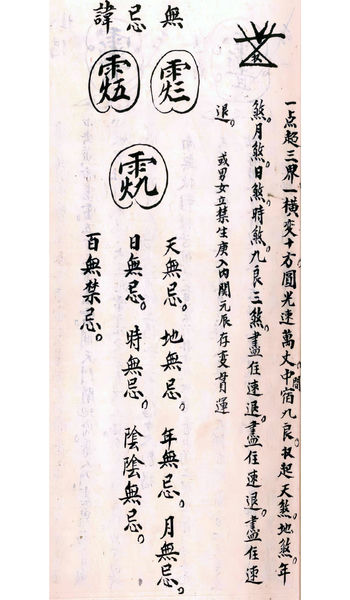 一点起三界一橫变十方圓光速萬丈中宿九良。起天煞。地煞。年
間
煞。月煞。日煞。時煞。九良三煞。盡住速退。盡住速退。盡住速
退。
或男女立禁生庚入內元辰存变運
無忌諱
天無忌。地無忌。年無忌。月無忌。
日無忌。時無忌。陰陰無忌。
百無禁忌。